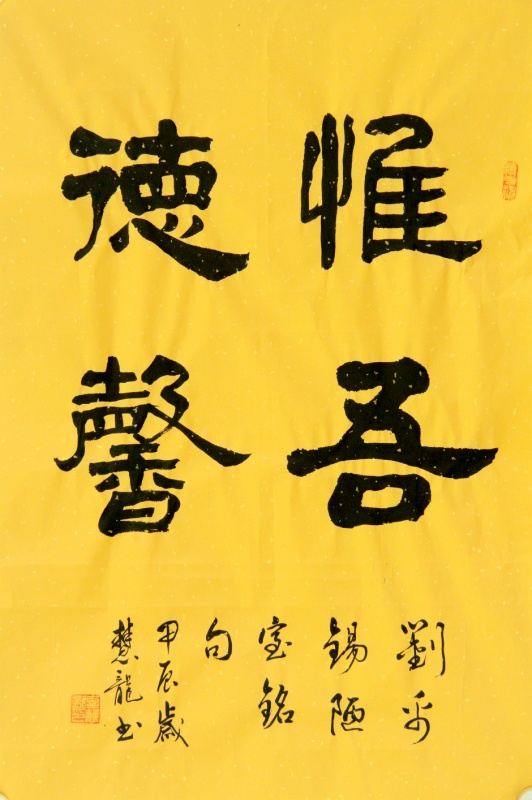 惟吾
德馨
劉禹
錫陋
室銘
句
甲辰歲
慧龍书